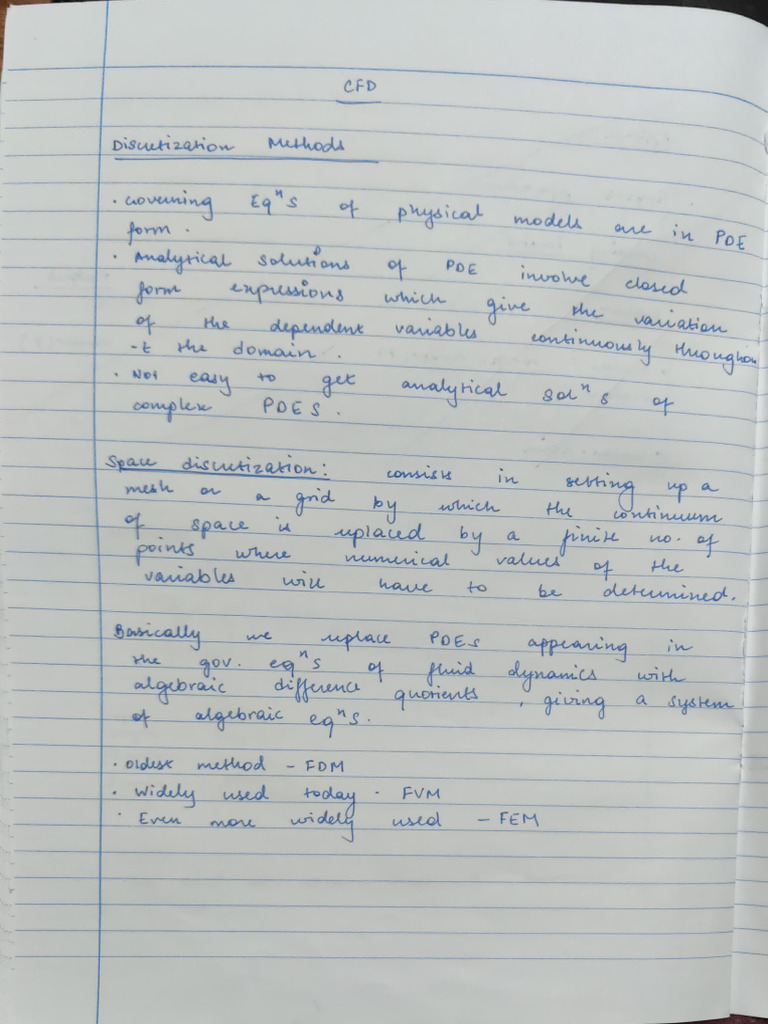 CFD
Discretization Methods
· Governing Eqⁿs of physical models are in PDE
form.
· Analytical solutions of PDE involve closed
form expressions which give the variation
of the dependent variables continuously throughou
-t the domain.
· Not easy to get analytical solⁿs of
complex PDES.
Space discretization: consists in setting up a
mesh or a grid by which the continuum
of space is replaced by a finite no. of
points where numerical values of the
variables will have to be determined.
Basically we replace PDEs appearing in
the gov. eqⁿs of fluid dynamics with
algebraic difference quotients, giving a system
of algebraic eqⁿs.
· Oldest method - FDM
· Widely used today - FVM
· Even more widely used - FEM